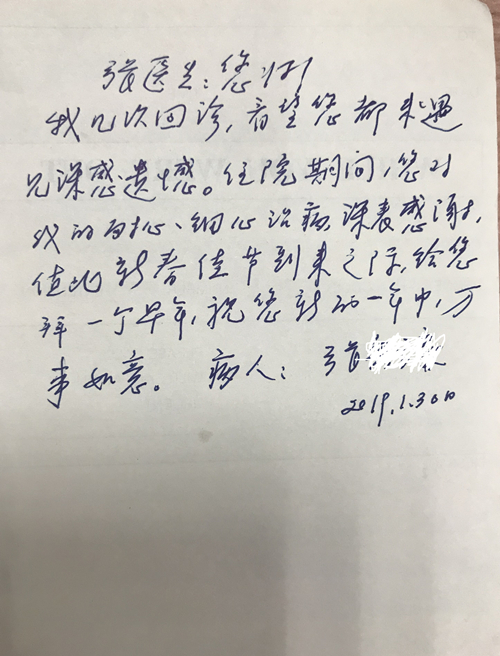 张医生：您好！
我几次回诊，看望您都未遇
见深感遗憾。住院期间，您对
我的耐心、细心治病，深表感谢，
值此新春佳节到来之际，给您
拜一个早年，祝您新的一年中，万
事如意。 病人： 张
2019.1.30日